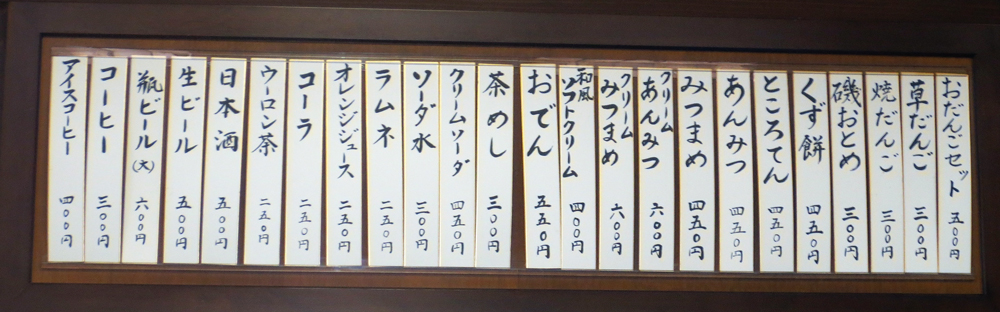 おだんごセット 五〇〇円
草だんご 三〇〇円
焼だんご 三〇〇円
磯おとめ 三〇〇円
くず餅 四五〇円
ところてん 四五〇円
あんみつ 四五〇円
みつまめ 四五〇円
クリームあんみつ 六〇〇円
クリームみつまめ 六〇〇円
和風ソフトクリーム 四〇〇円
おでん 五五〇円
茶めし 三〇〇円
クリームソーダ 四五〇円
ソーダ水 三〇〇円
ラムネ 二五〇円
オレンジジュース 二五〇円
コーラ 二五〇円
ウーロン茶 二五〇円
日本酒 五〇〇円
生ビール 五〇〇円
瓶ビール(大) 六〇〇円
コーヒー 三〇〇円
アイスコーヒー 四〇〇円